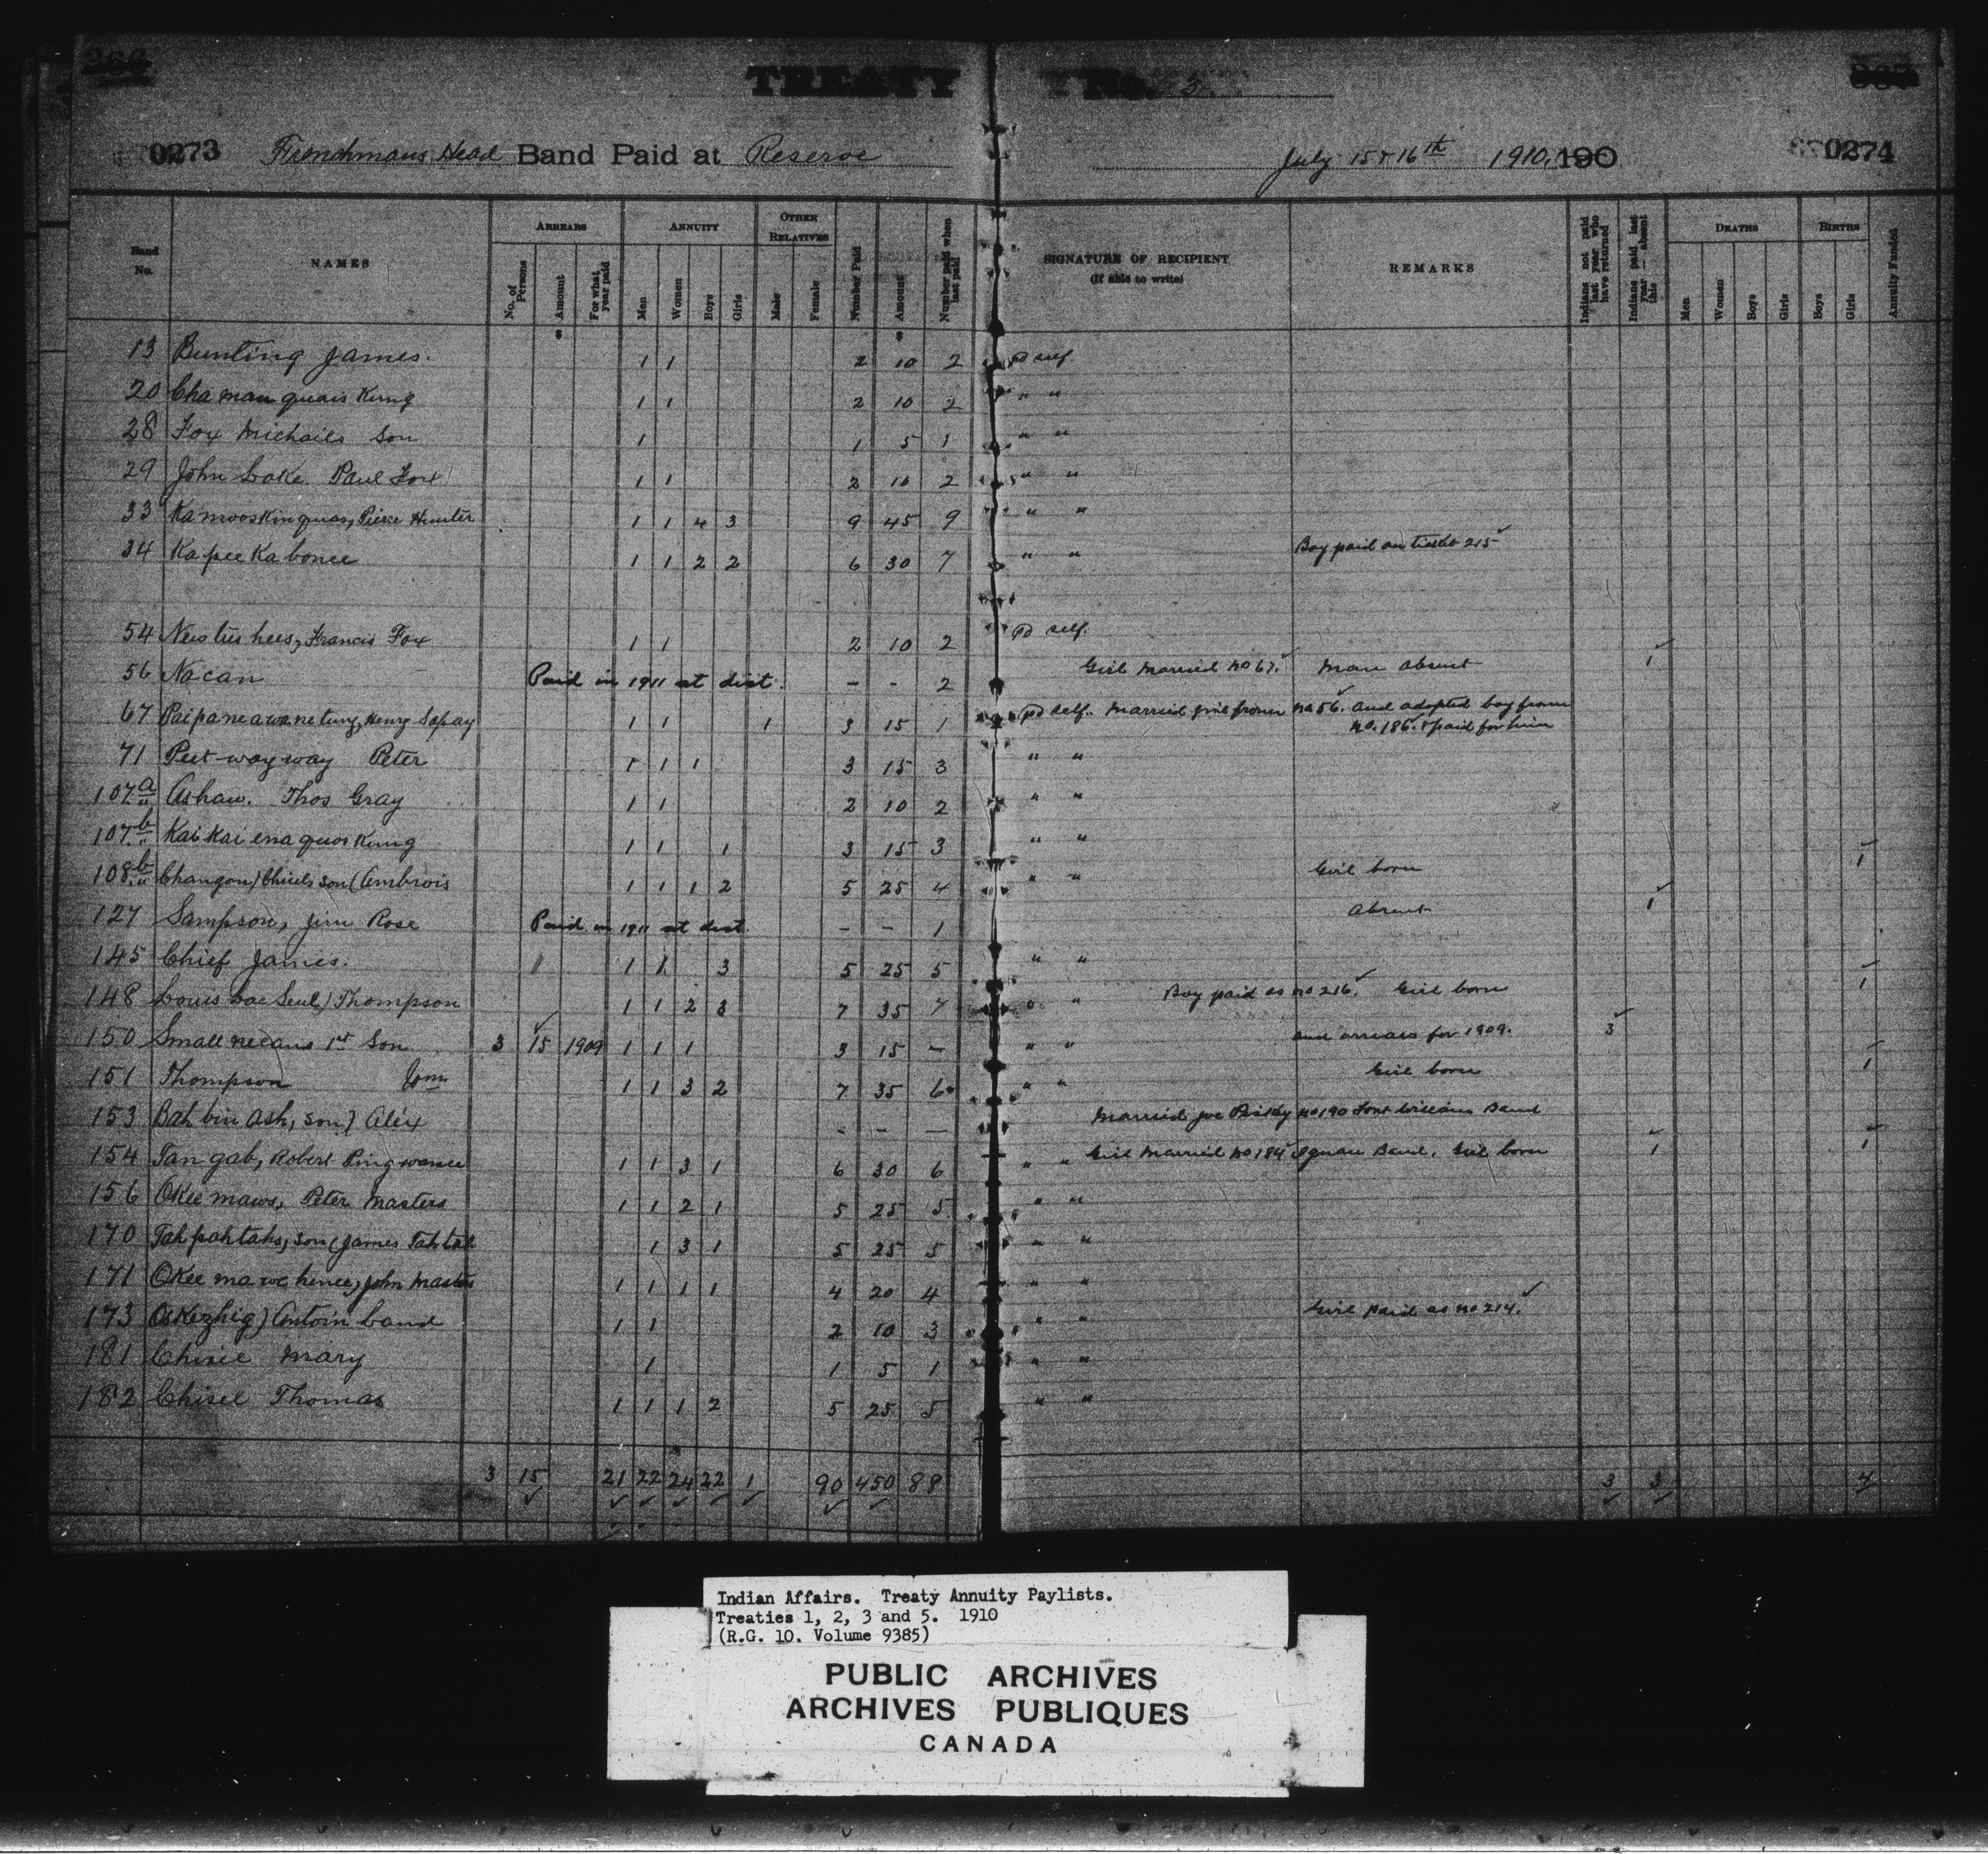 TREATY No. 3.
0273 Frenchmans Head Band Paid at Reserve July 15 & 16th 1910. 190 0274
Band No. NAMES ARREARS ANNUITY OTHER RELATIVES Number Paid Amount Number paid when last paid SIGNATURE OF RECIPIENT (If able to write) REMARKS Indians not paid last year who have returned Indians paid last year — absent this DEATHS BIRTHS Annuity Funded
No. of Persons Amount For what year paid Men Women Boys Girls Male Female Men Women Boys Girls Boys Girls
13 Bunting James. 1 1 2 10 2 pd self
20 Cha man quais Kung 1 1 2 10 2 " "
28 Fox Michails Son 1 1 5 1 " "
29 John Loke. Paul Fox 1 1 2 10 2 " "
33 Kamooskinquas, Pierre Hunter 1 1 4 3 9 45 9 " "
34 Ka pee Ka bonee 1 1 2 2 6 30 7 " " Boy paid on ticket 215
54 hees, Francis Fox 1 1 2 10 2 pd self.
56 Nacan Paid in 1911 at dist. - - 2 Girl Married no 67. Man absent 1
67 Paipaneawanetung, Henry Sapay 1 1 1 3 15 1 pd self. Married girl from no 56. and adopted boy from
no. 186. & paid for him
71 Peet way way Peter 1 1 1 3 15 3 " "
107a Ashaw. Thos Gray 1 1 2 10 2 " "
107b Kai kai ena quos Kung 1 1 1 3 15 3 " "
108b Changon) Chisels son (Ambrois 1 1 1 2 5 25 4 " " Girl born 1
127 Sampson, Jim Rose Paid in 1911 at dist - - 1 Absent 1
145 Chief James. 1 1 3 5 25 5 " "
148 Louis Lac Seul) Thompson 1 1 2 3 7 35 7 " " Boy paid as no 216. Girl born 1
150 Small necans 1st Son 3 15 1909 1 1 1 3 15 - " " and arrears for 1909. 3
151 Thompson Jim 1 1 3 2 7 35 6 " " Girl born 1
153 Bah bin ash, son) Alex - - - Married Joe no 190 Fort William Band
154 Tan gab, Robert Ping wanee 1 1 3 1 6 30 6 " " Girl Married no 184 Ignace Band. Girl born 1 1
156 Okee maws, Peter Masters 1 1 2 1 5 25 5 " "
170 Tah pah tahs, son (James Tahtah 1 3 1 5 25 5 " "
171 Okee ma we hence, John Masters 1 1 1 1 4 20 4 " "
173 Oskezhig) Antoin band 1 1 2 10 3 " " Girl paid as no 214.
181 Chisie Mary 1 1 5 1 " "
182 Chisel Thomas 1 1 1 2 5 25 5 " "
3 15 21 22 24 22 1 90 450 88 3 3 4
Indian Affairs. Treaty Annuity Paylists.
Treaties 1, 2, 3 and 5. 1910
(R.G. 10. Volume 9385)
PUBLIC ARCHIVES
ARCHIVES PUBLIQUES
CANADA